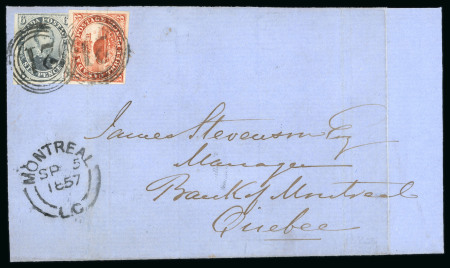 POSTAGE
SIX PENCE
MONTREAL
SP 5
1857
L.C
James Stevenson Esq
Manager
Bank of Montreal
Quebec